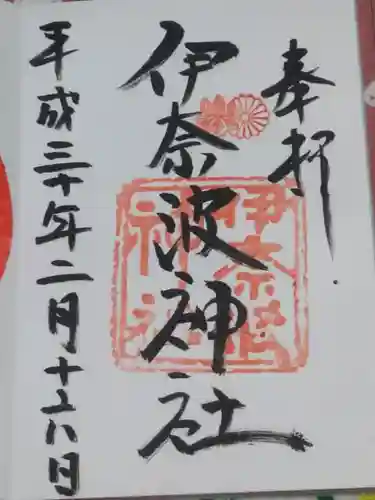 奉拝
伊奈波神社
伊奈波
神社
平成三十年二月十六日